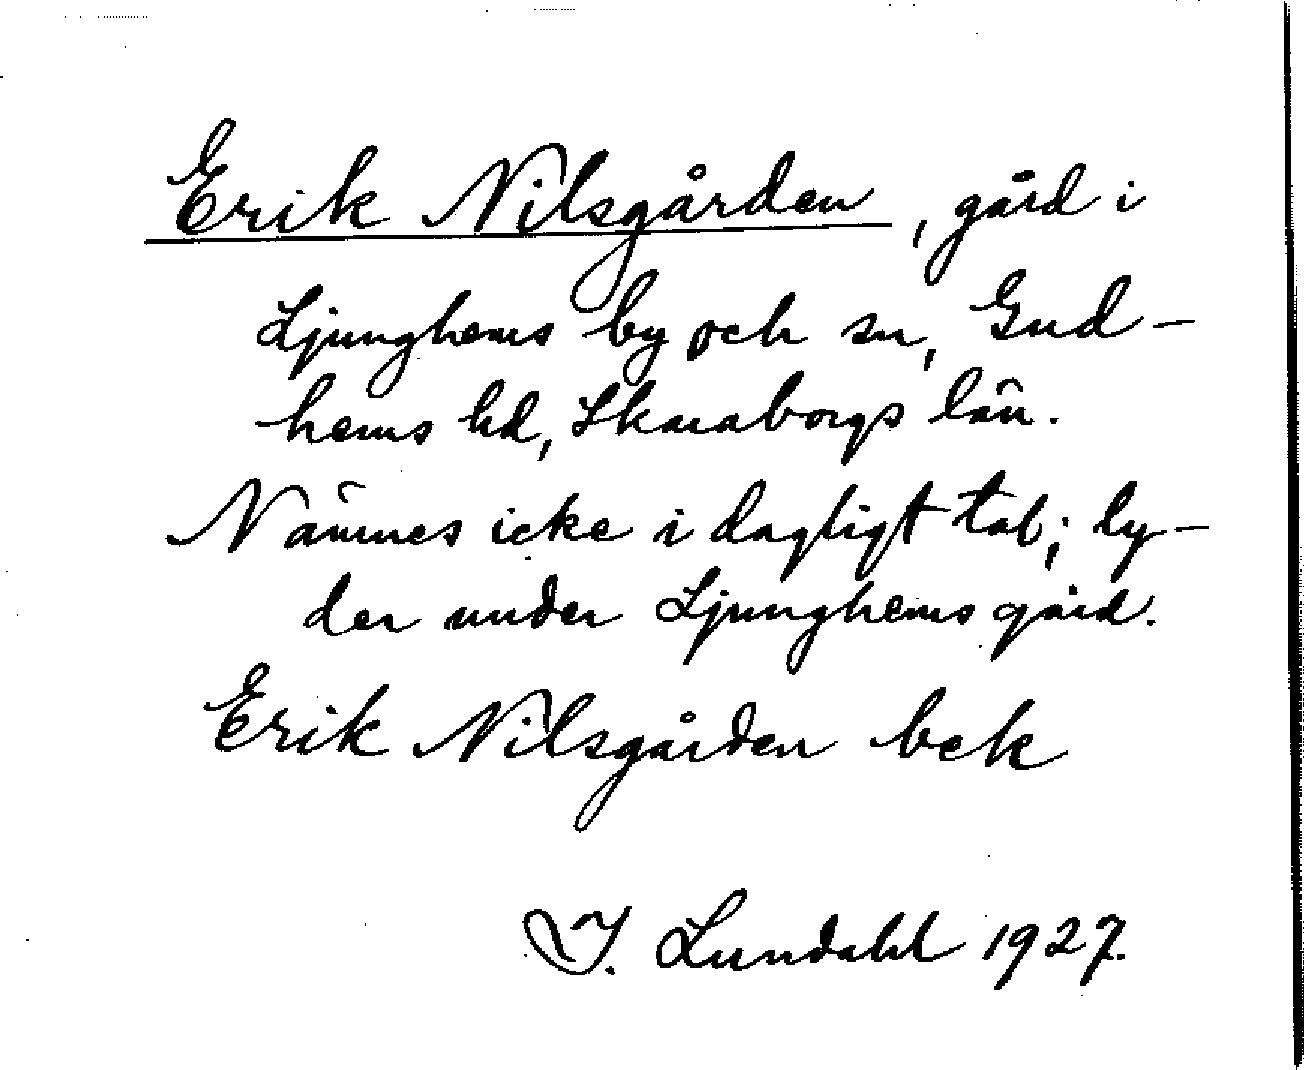 Erik Nilsgården, gård i
Ljunghems by och sn, Gud-
hems hd, Skaraborgs län.
Nämnes icke i dagligt tal; ly-
der under Ljunghems gård.
Erik Nilsgården bek
I. Lundahl 1927.